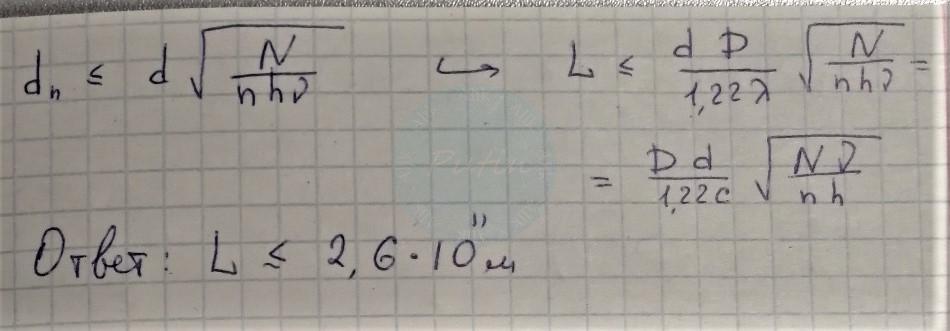 dₙ ≤ d √(N / nhν) ↪ L ≤ (d D / 1,22λ) √(N / nhν) =
= (D d / 1,22c) √(N ν / n h)
Ответ: L ≤ 2,6·10¹¹ м